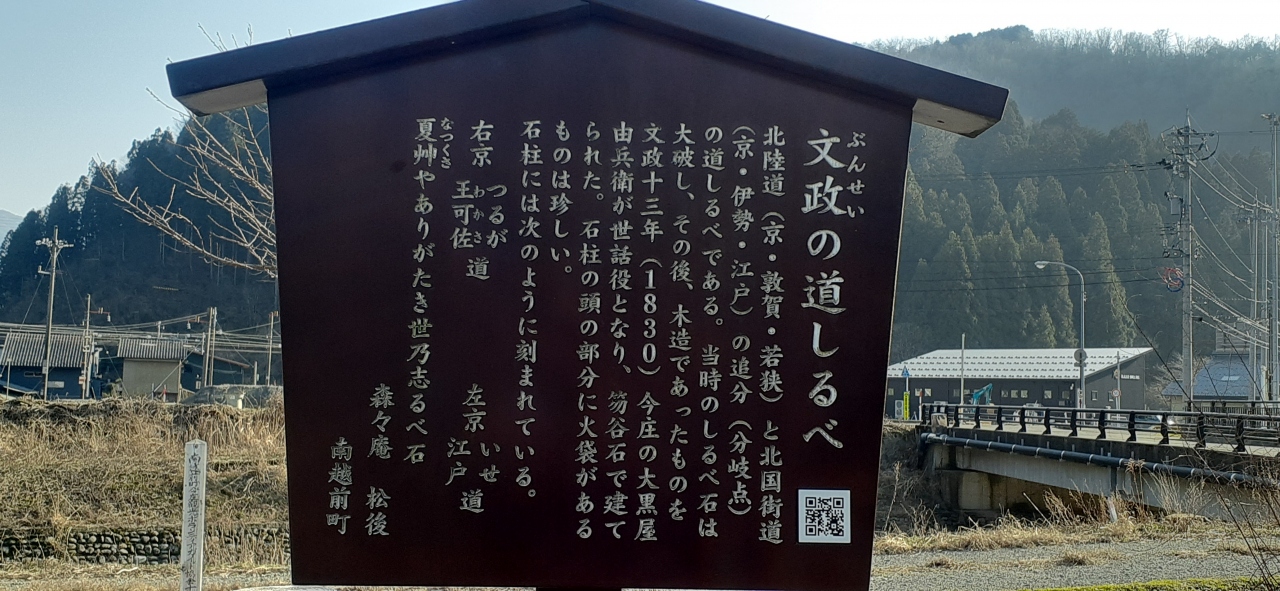 ぶんせい
文政の道しるべ
北陸道（京・敦賀・若狭）と北国街道
（京・伊勢・江戸）の追分（分岐点）
の道しるべである。当時のしるべ石は
大破し、その後、木造であったものを
文政十三年（1830）今庄の大黒屋
由兵衛が世話役となり、笏谷石で建て
られた。石柱の頭の部分に火袋がある
ものは珍しい。
石柱には次のように刻まれている。
右京 つるが 王可佐 道 左京 いせ 江戸 道
わかさ
なつくさ
夏艸やありがたき世乃志るべ石
森々庵 松後
南越前町